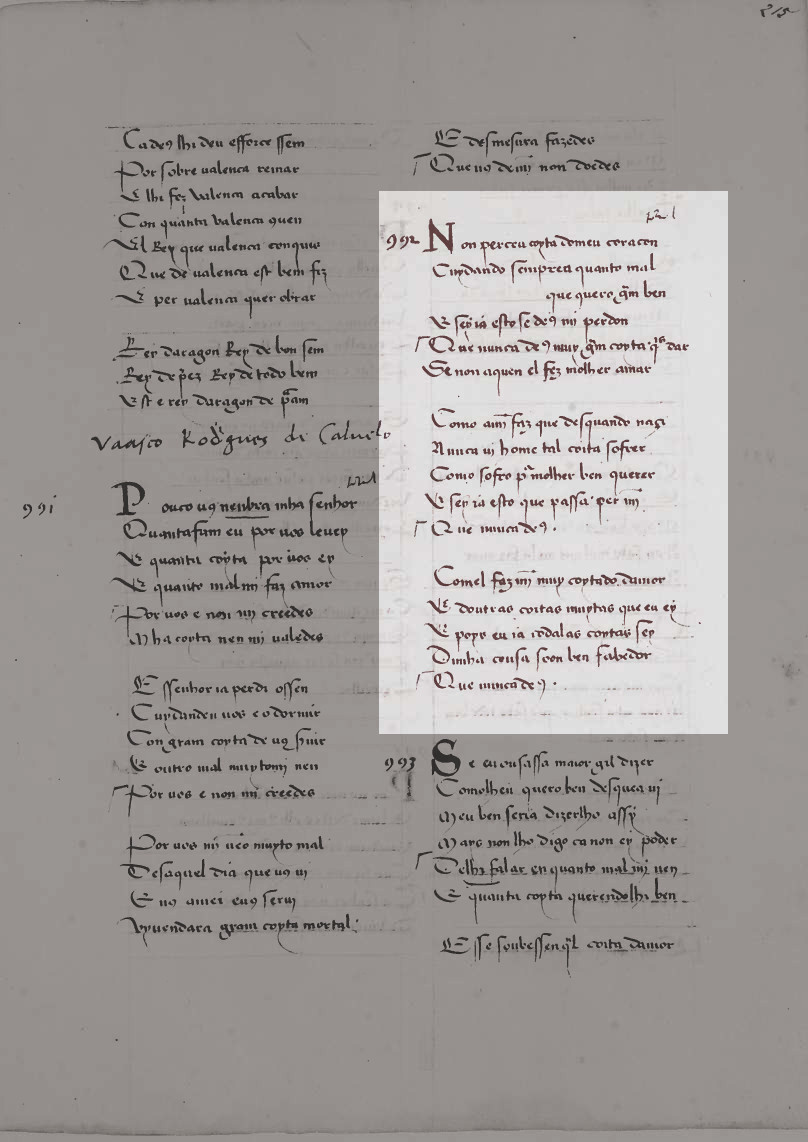 215
Ca de9 lhi deu esforce ssem
Por sobre valenca reinar
E lhi fez valenca acabar
Con quanta valenca quen
El Rey que valenca conquis
Que de valenca est bem fiz
E per valenca quer obrar
Rey daragon Rey de bon sem
Rey de p̃z Rey de todo bem
Est e rey daragon de p̃am
Vaasco Rod̃gues de Caluelo
991
Pouco uq nenbra mha senhor
Quantafam eu por uos leuey
E quanta coyta por uos ey
E quanto mal mi faz amor
Por vos e non mi creedes
Mha coyta nen mi valedes
E ssenhor ia perdi o ssen
Cuydandeu uos e o dormir
Con gram coyta de uq suir
E outro mal muytomi uen
Por uos e non mi creedes
Por uos mi ueo muyto mal
Desaquel dia que uq ui
E uq amei e uq serui
Vyuendara gram coyta mortal
E desmesura fazedes
Que uq de mi non doedes
992
Non perceu coyta do meu coracon
Cuydando sempren quanto mal
que quero gm̃ ben
E sey ia esto se de9 mi perdon
Que nunca de9 muy gm̃ coyta q̃s dar
Se non aquen el fez molher amar
Como amj̃ faz que desquando naçi
Nunca ui home tal coita sofrer
Como sofro p̃ molher ben querer
E sey ia esto que passa per mj̃
Que nunca de9 .
Comel faz mj̃ muy coytado damor
E doutras coitas muytas que eu ey
E poys eu ia todalas coytas sey
Dunha cousa soon ben sabedor
Que nunca de9 .
993
Se eu ousassa mayor gil dizer
Comolheu quero ben desquea ui
Meu ben seria dizerlho assy
Mays non lho digo ca non ey poder
Delhi falar en quanto mal mj̃ uen
E quanta coyta querendolhi ben
E sse soubessen q̃l coita damor